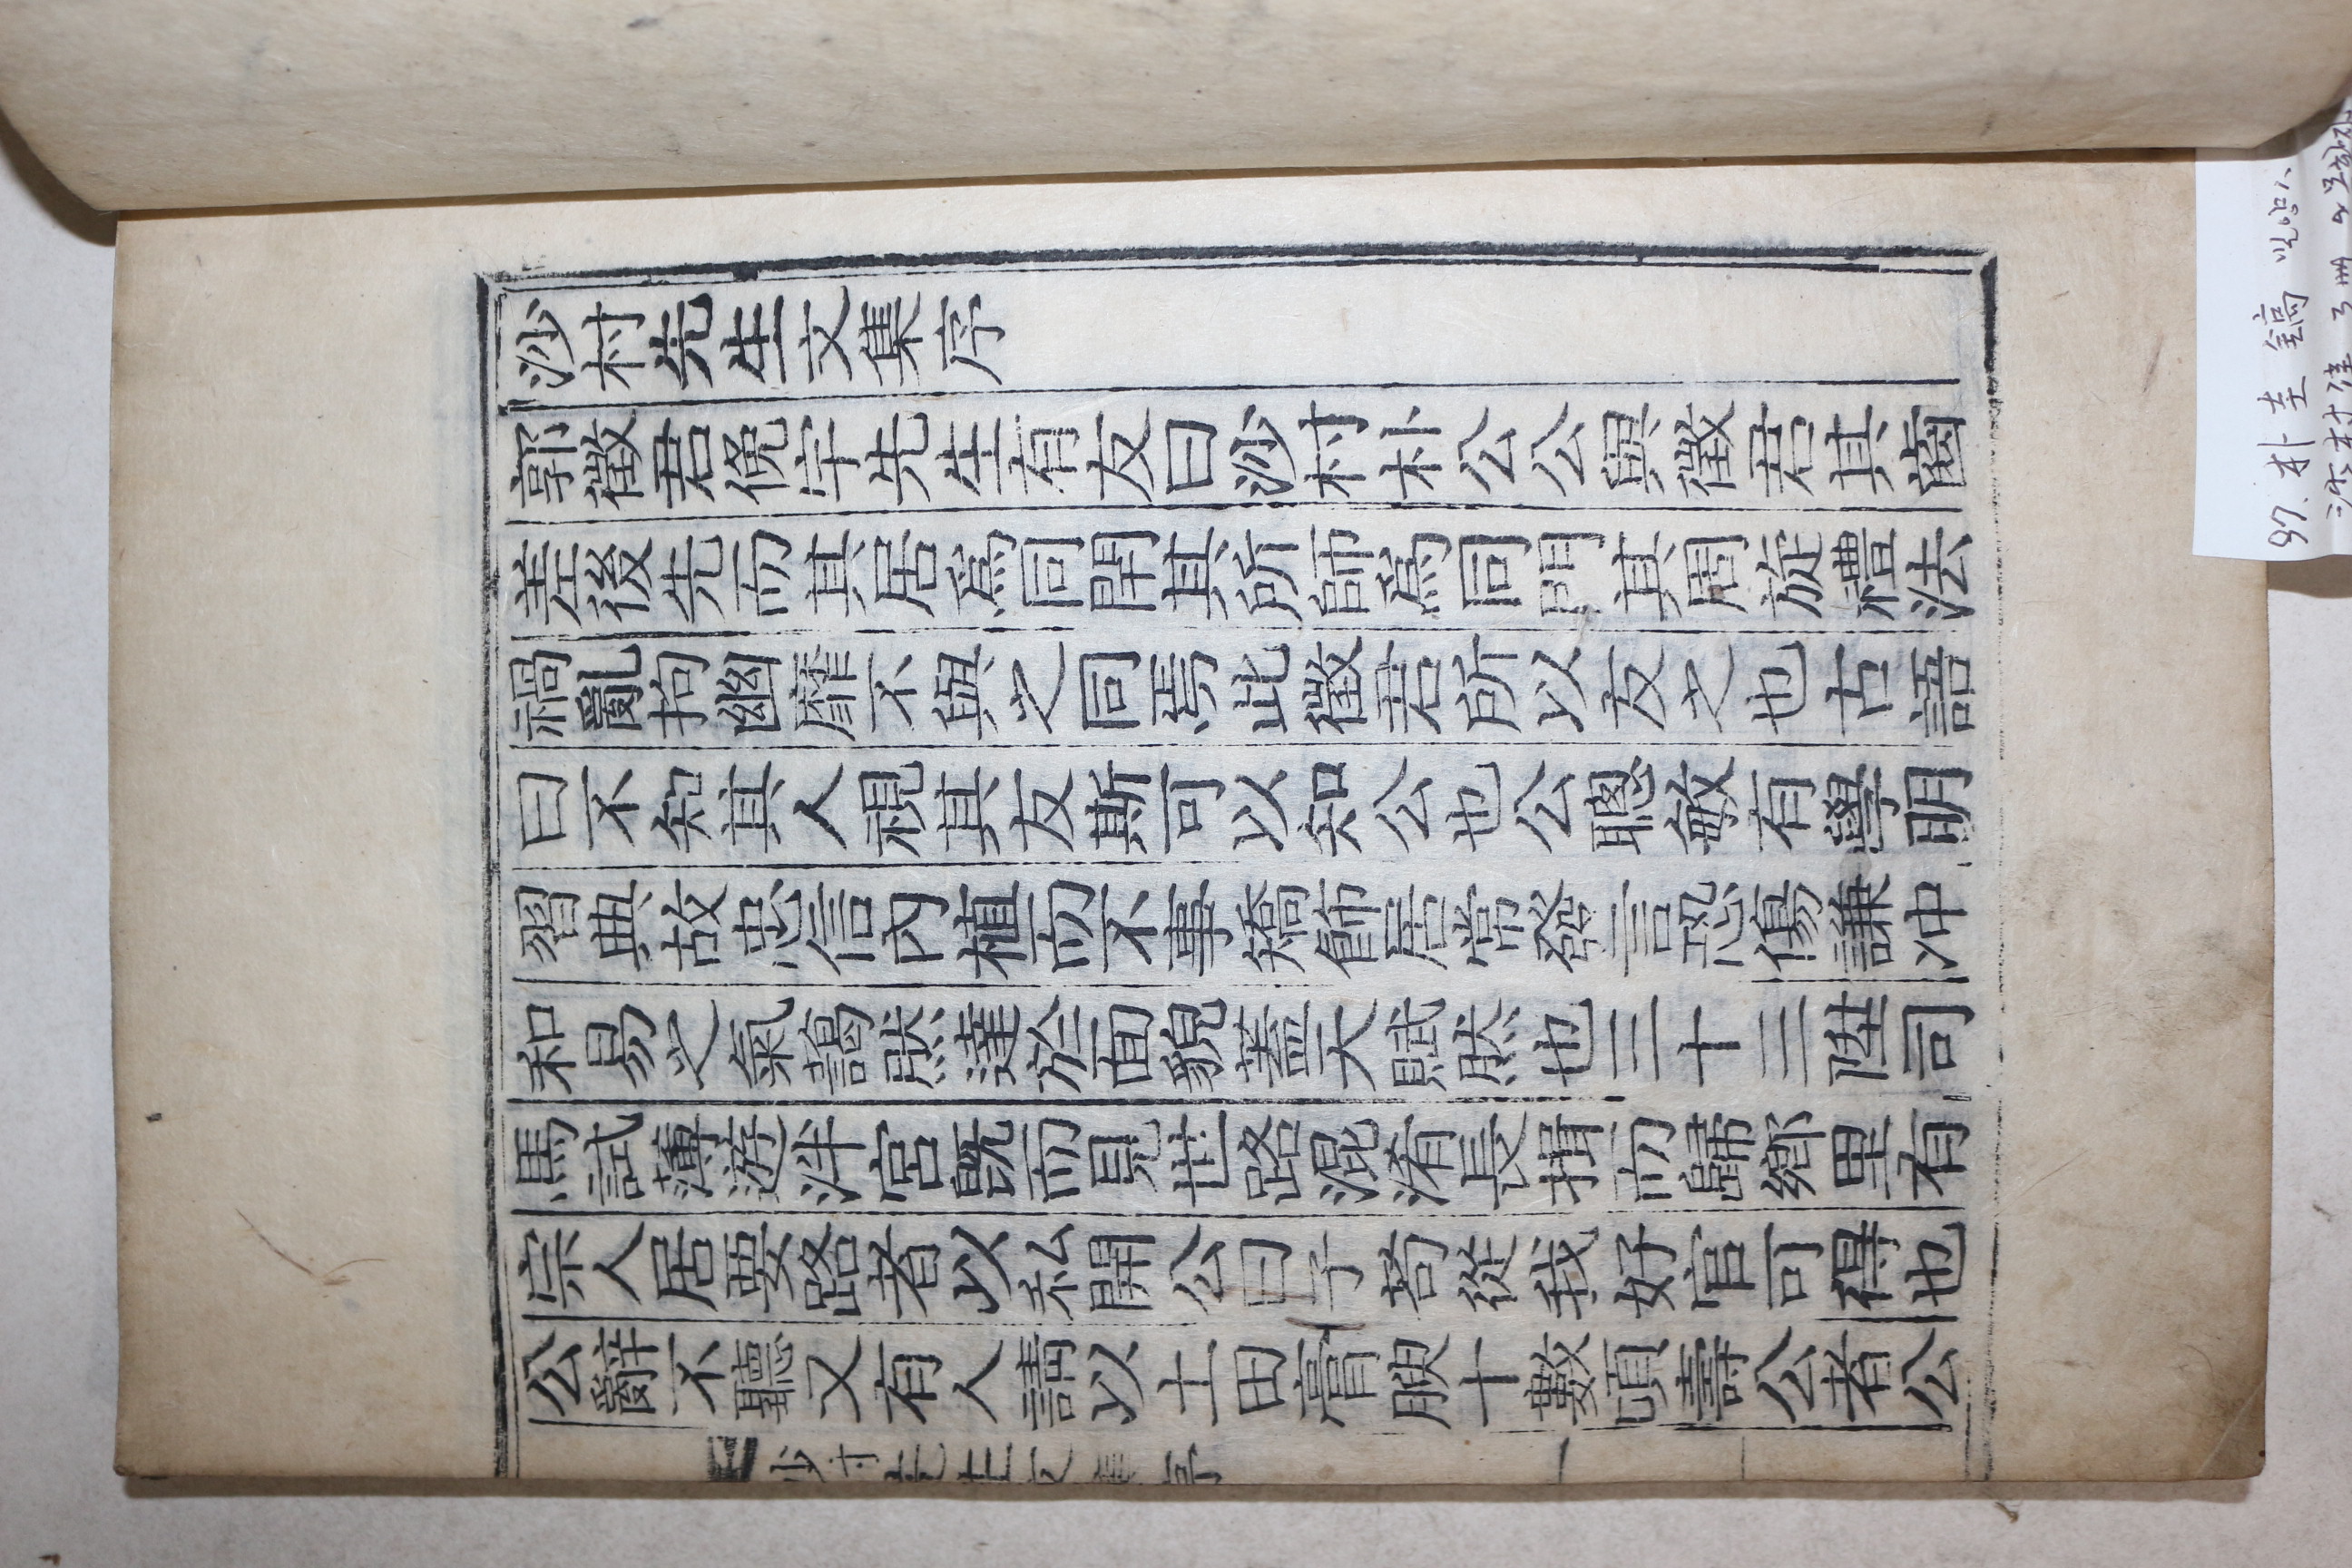 沙村先生文集序
郭徵君俛宇先生有友曰沙村朴公公與徵君其齒
差後先而其居爲同閈其所師爲同門其周旋禮法
禍亂拘幽靡不與之同焉此徵君所以友之也古語
曰不知其人視其友斯可以知公也公聰敏有學明
習典故忠信內植而不事矯飾居常發言恐傷謙冲
和易之氣藹然達於面貌蓋天賦然也三十三陞司
馬試薄遊泮宮旣而見世路混淆長揖而歸鄕里有
宗人居要路者以私開公曰子苟從我好官可得也
公辭不聽又有人請以土田膏腴十數頃壽公者公
沙村先生文集序
97. 朴圭鎬
沙村集 3冊